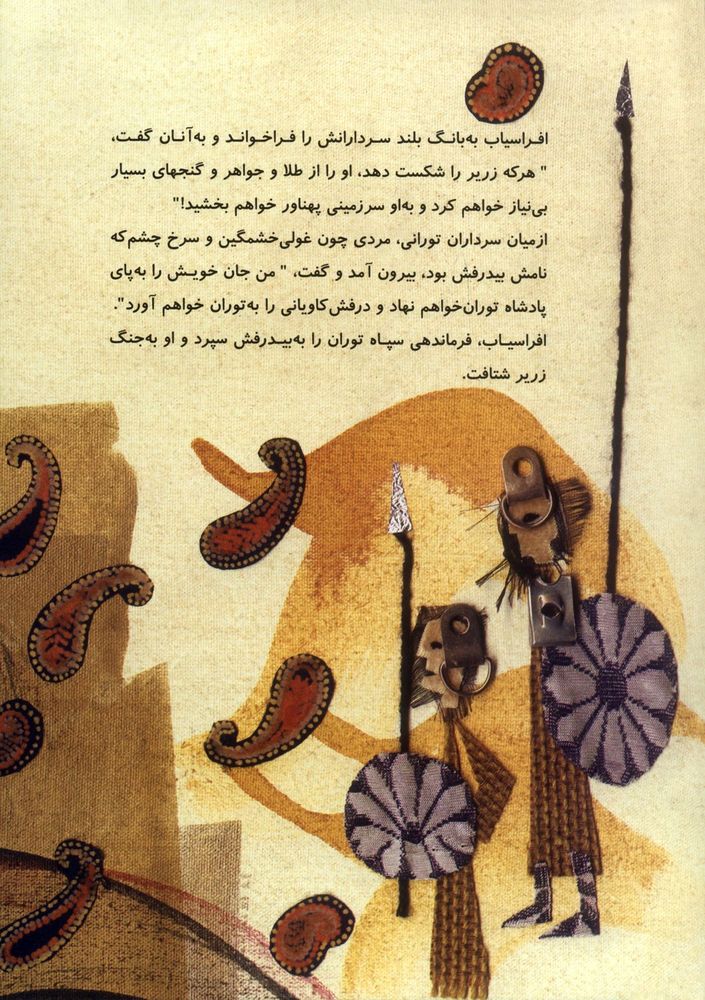 افراسیاب به‌بانگ بلند سردارانش را فراخواند و به‌آنان گفت،
" هرکه زریر را شکست دهد، او را از طلا و جواهر و گنجهای بسیار
بی‌نیاز خواهم کرد و به‌او سرزمینی پهناور خواهم بخشید!"
ازمیان سرداران تورانی، مردی چون غولی‌خشمگین و سرخ چشم‌که
نامش بیدرفش بود، بیرون آمد و گفت، " من جان خویش را به‌پای
پادشاه توران‌خواهم نهاد و درفش‌کاویانی را به‌توران خواهم آورد".
افراسیاب، فرماندهی سپاه توران را به‌بیدرفش سپرد و او به‌جنگ
زریر شتافت.